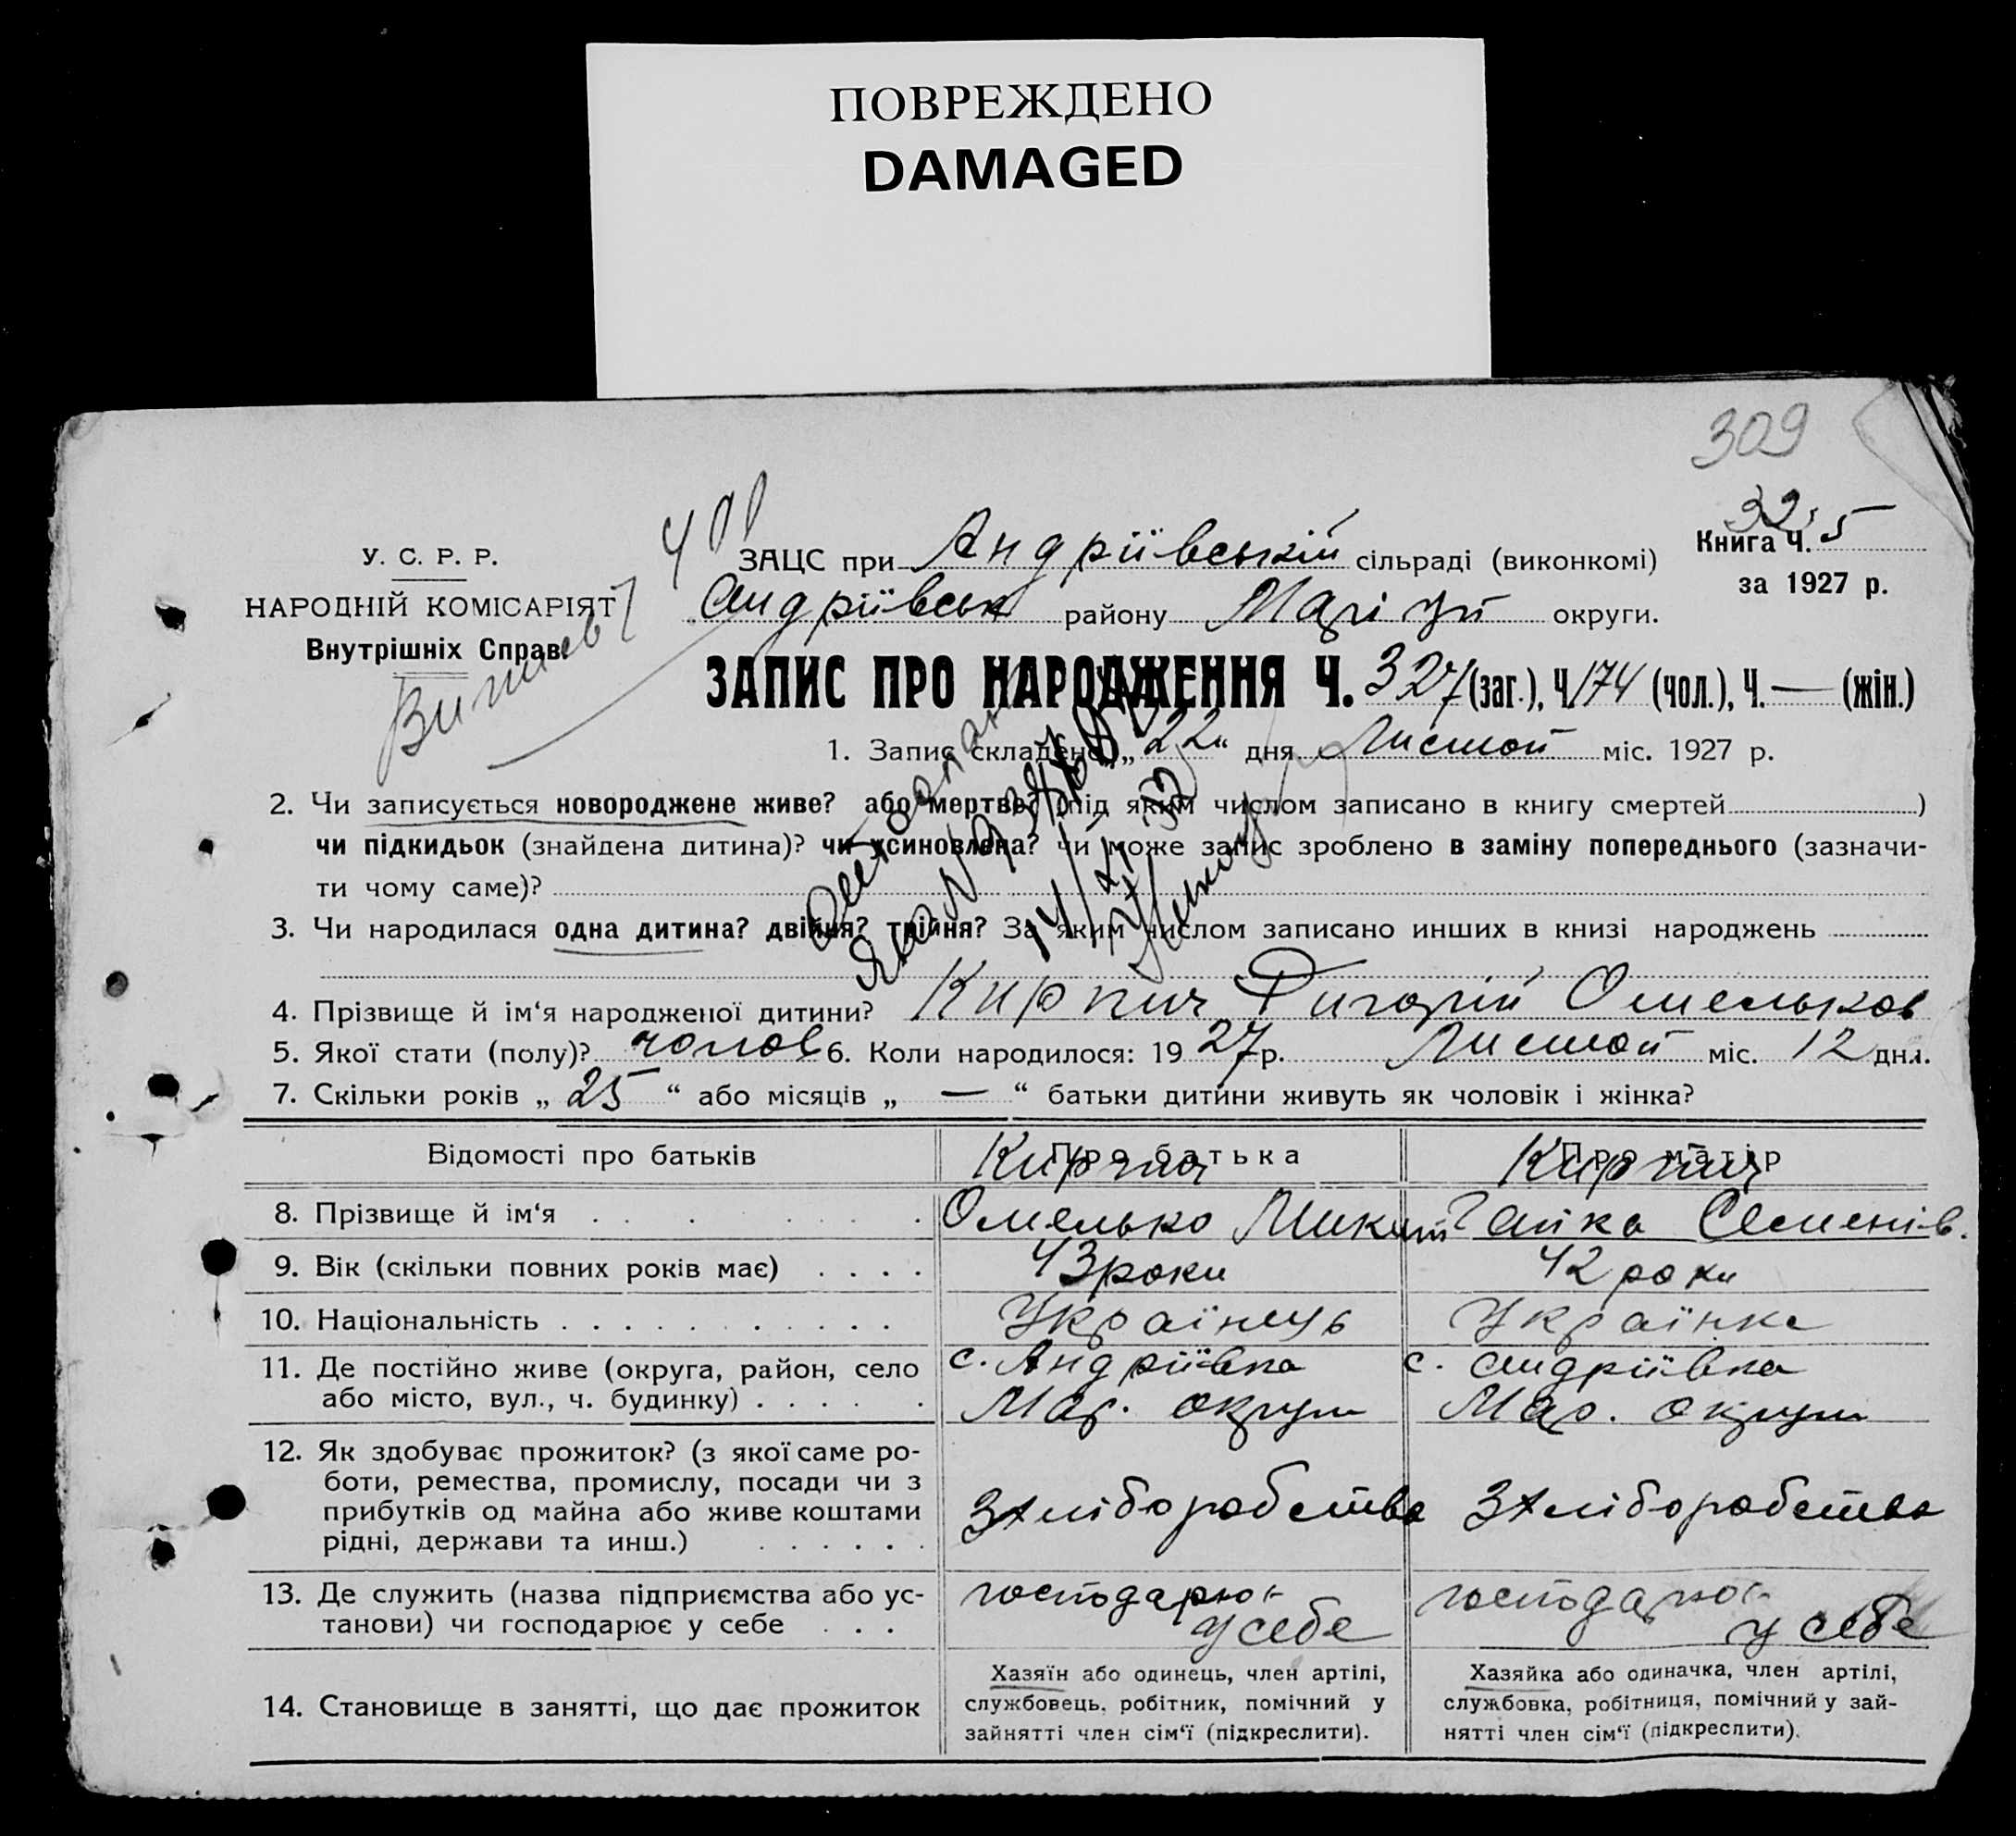 ПОВРЕЖДЕНО
DAMAGED
309
32
У. С. Р. Р.
НАРОДНІЙ КОМІСАРІЯТ
Внутрішніх Справ.
ЗАЦС при Андріївській сільраді (виконкомі)
Книга Ч. 5
за 1927 р.
Андріївськ району Маріуп округи.
ЗАПИС ПРО НАРОДЖЕННЯ Ч. 327 (заг.), Ч. 174 (чол.), Ч. — (жін.)
1. Запис складено „22“ дня Листоп. міс. 1927 р.
2. Чи записується новороджене живе? або мертве? (під яким числом записано в книгу смертей )
чи підкидьок (знайдена дитина)? чи усиновлена? чи може запис зроблено в заміну попереднього (зазначи-
ти чому саме)?
3. Чи народилася одна дитина? двійня? трійня? За яким числом записано инших в книзі народжень
4. Прізвище й ім‘я народженої дитини? Кирпич Григорій Омельков
5. Якої стати (полу)? чолов 6. Коли народилося: 1927 р. Листоп міс. 12 дня.
7. Скільки років „ 25 “ або місяців „ — “ батьки дитини живуть як чоловік і жінка?
Відомості про батьків Про батька Про матір
Кирпич Кирпич
8. Прізвище й ім‘я Омелько Микит Гапка Семенів.
9. Вік (скільки повних років має) 43 роки 42 роки
10. Національність Українець Українка
11. Де постійно живе (округа, район, село с. Андріївка с. Андріївка
або місто, вул., ч. будинку) Мар. округи Мар. округи
12. Як здобуває прожиток? (з якої саме ро-
боти, ремества, промислу, посади чи з
прибутків од майна або живе коштами
рідні, держави та инш.)
З хліборобства З хліборобства
13. Де служить (назва підприємства або ус-
танови) чи господарює у себе
господарює у себе господарює у себе
14. Становище в занятті, що дає прожиток
Хазяїн або одинець, член артілі,
службовець, робітник, помічний у
зайнятті член сім‘ї (підкреслити).
Хазяйка або одиначка, член артілі,
службовка, робітниця, помічний у зай-
нятті член сім‘ї (підкреслити).